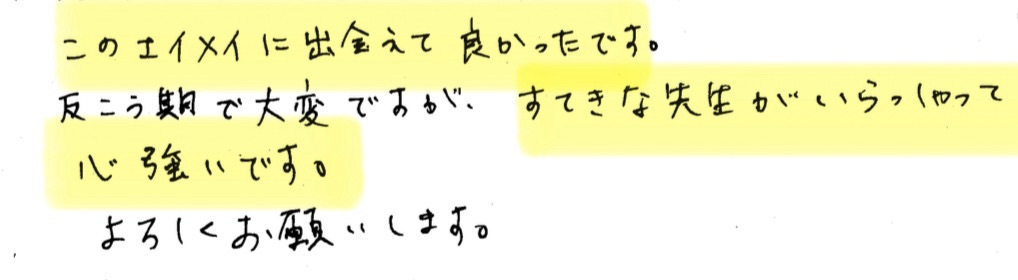 このエイメイに出会えて良かったです。
反こう期で大変ですが、すてきな先生がいらっしゃって
心強いです。
よろしくお願いします。